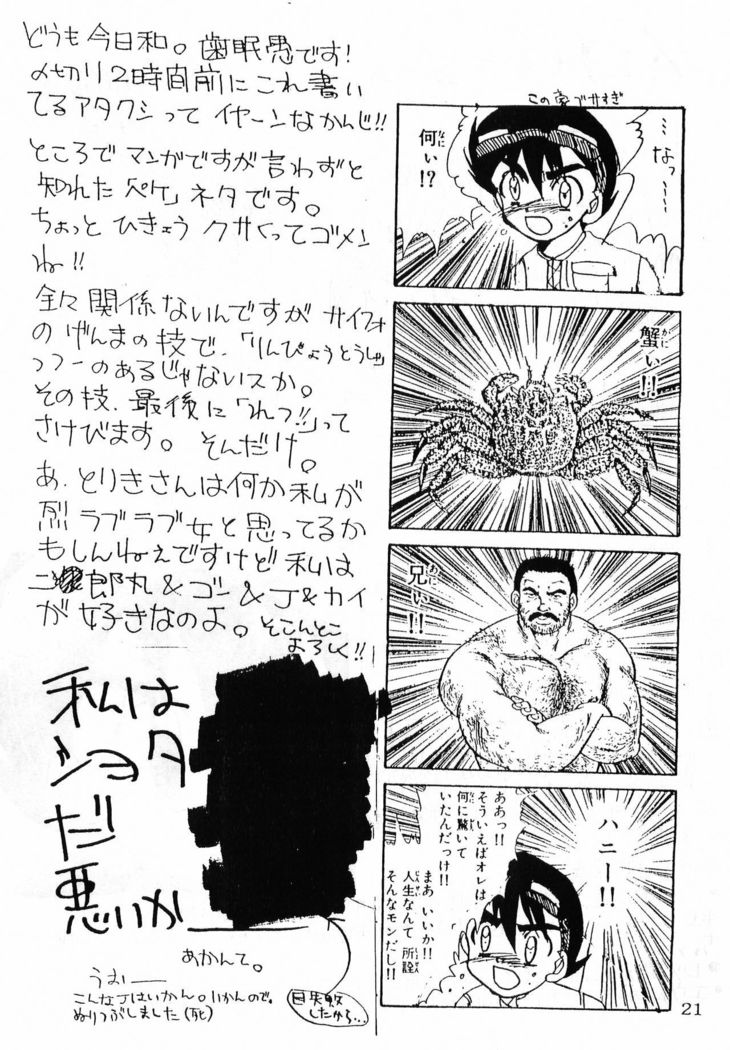 どうも今日和。歯眠愚です!
〆切り2時間前にこれ書い
てるアタクシって イヤーンなかんじ!!
ところで マンガですが言わずと
知れた「ペケ」ネタです。
ちょっと ひきょう クサくってゴメン
ね!!
全々関係ないんですが サイフォ
のげんまの技で、「りんぴょうとうしゃ」
っつーのあるじゃないスか。
その技、最後に「れつ!!」って
さけびます。そんだけ。
あ、とりきさんは何か私が
烈ラブラブ女と思ってるか
もしんねえですけど私は
郎丸&ゴン&J&カイ
が好きなのよ。そこんとこ
よろしく!!
私は
ショタ
だ
悪いか
あかんて。
うおー
こんなJはいかん。いかんので。
ぬりつぶしました(死)
目失敗
したから…
この字デカすぎ
…なっ…
何ぃ!?
蟹ぃ!!
兄ぃ!!
ハニー!!
ああっ!!
そういえばオレは
何に驚いて
いたんだっけ!!
まあ いいか!!
人生なんて 所詮
そんなモンだし!!
21